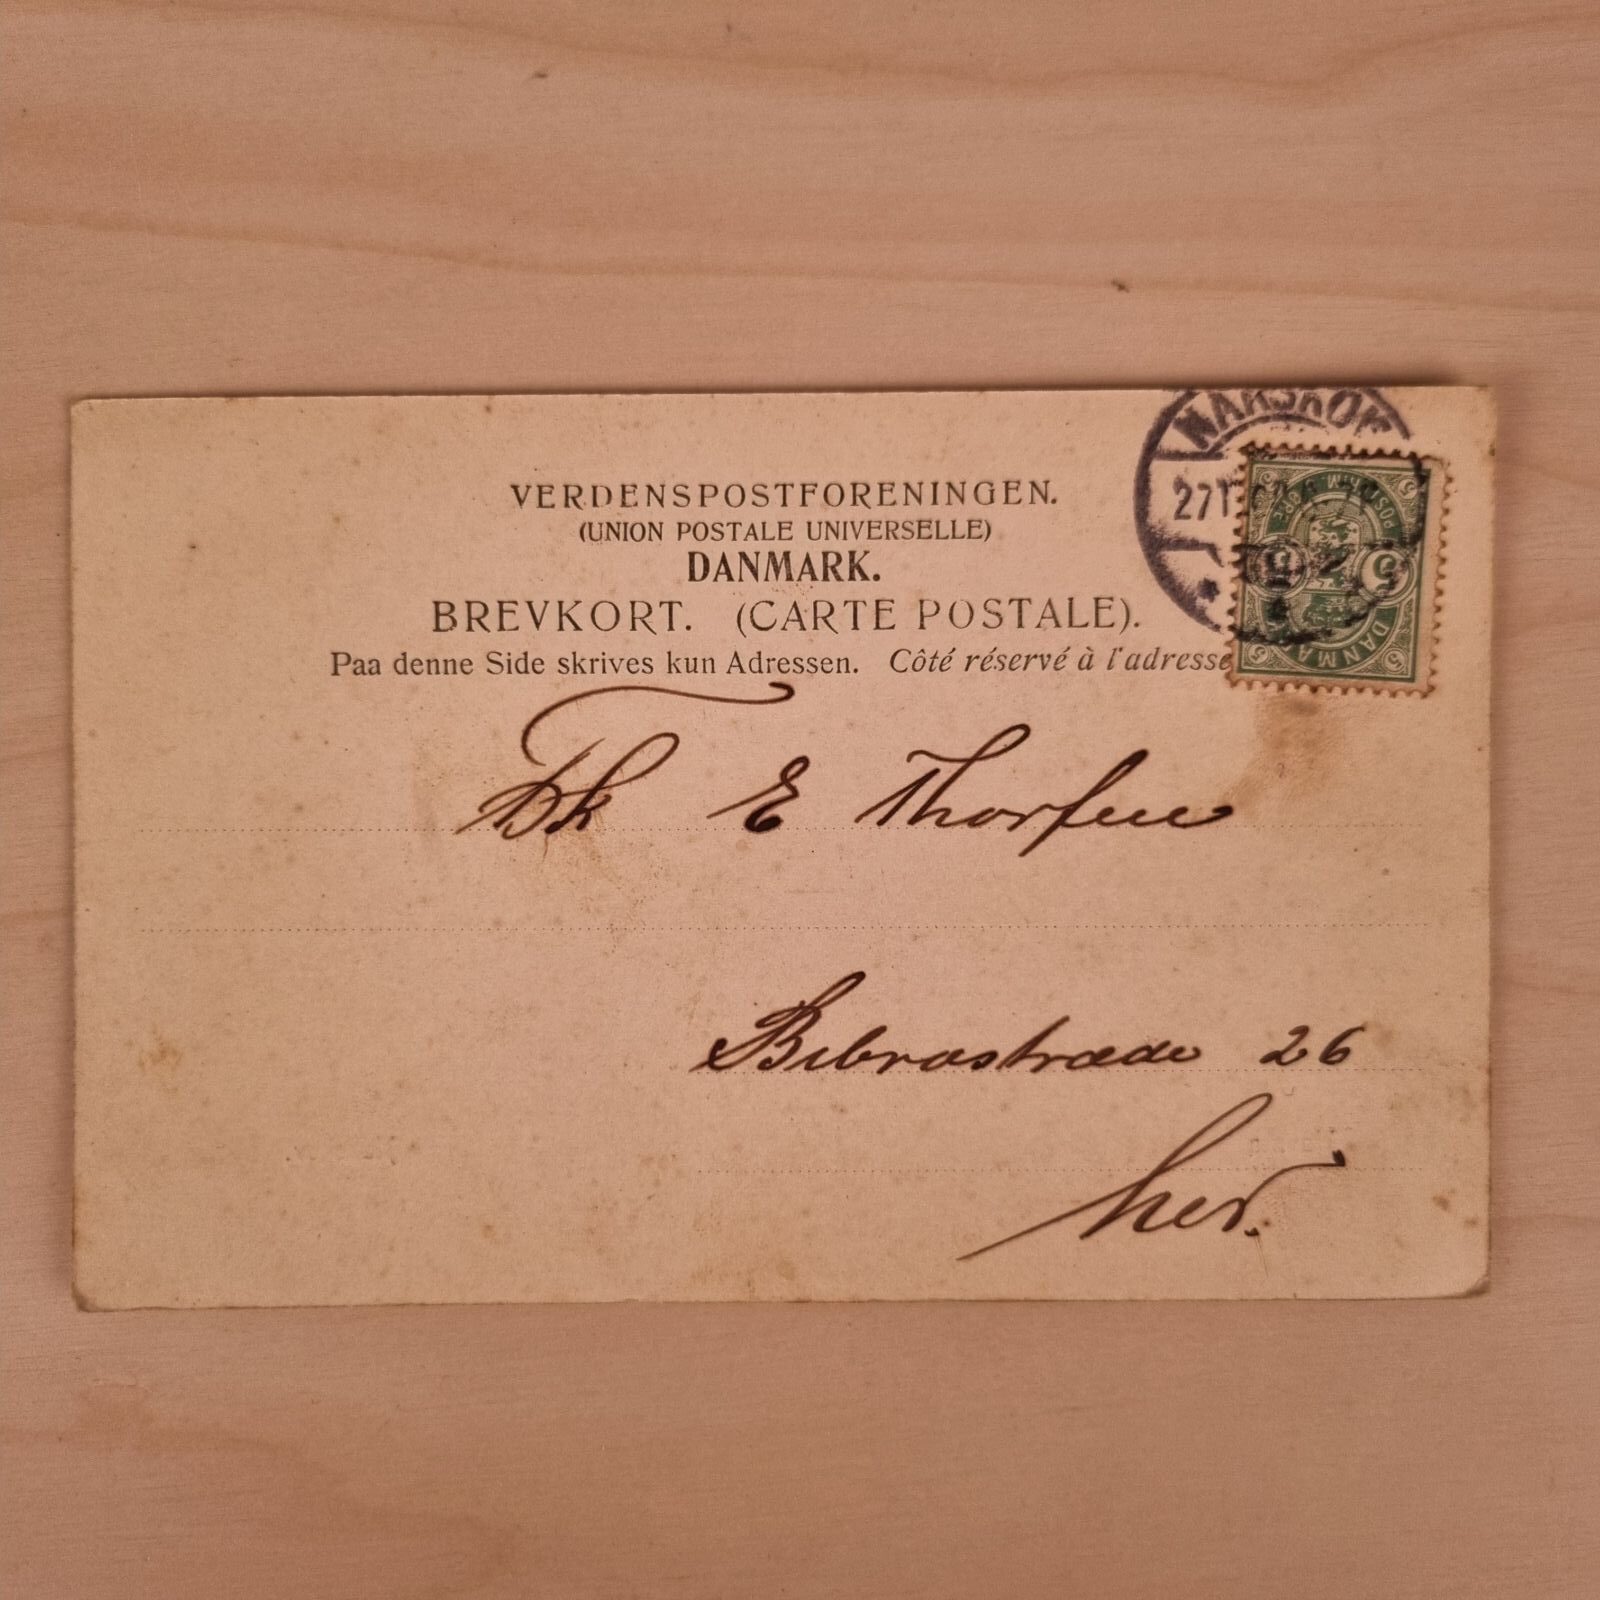 NAKSKOV
271
VERDENSPOSTFORENINGEN.
(UNION POSTALE UNIVERSELLE)
DANMARK.
BREVKORT. (CARTE POSTALE).
Paa denne Side skrives kun Adressen. Côté réservé à l'adresse
5 POSTFRIM. 5
5 5
DANMA
E Thorsen
Bibrastræde 26
her.